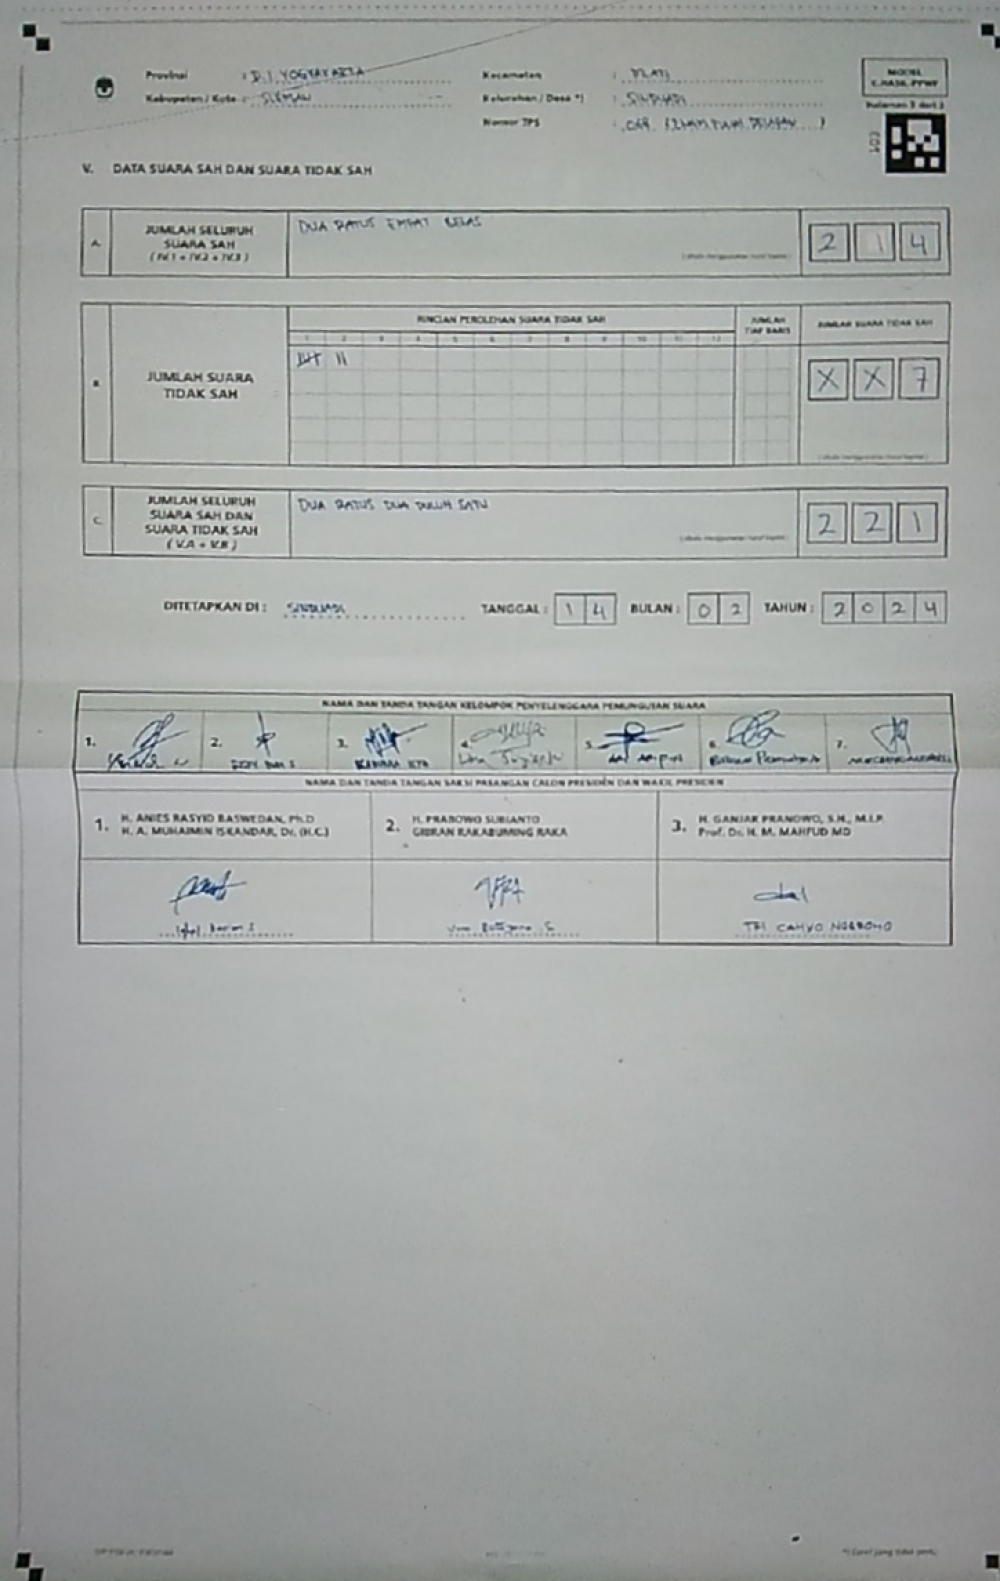 Provinsi : D.I. YOGYAKARTA
Kabupaten / Kota : SLEMAN
Kecamatan : MLATI
Kelurahan / Desa *) : SINDUADI
Nomor TPS : 068 (ENAM PULUH DELAPAN)
MODEL
C.HASIL-PPWP
Halaman 3 dari 3
V. DATA SUARA SAH DAN SUARA TIDAK SAH
A. JUMLAH SELURUH SUARA SAH ( IV.1 + IV.2 + IV.3 ) DUA RATUS EMPAT BELAS 2 1 4
RINCIAN PEROLEHAN SUARA TIDAK SAH
JUMLAH TIAP BARIS
JUMLAH SUARA TIDAK SAH
1 2 3 4 5 6 7 8 9 10 11 12
B. JUMLAH SUARA TIDAK SAH X X 7
C. JUMLAH SELURUH SUARA SAH DAN SUARA TIDAK SAH ( V.A + V.B ) DUA RATUS DUA PULUH SATU 2 2 1
DITETAPKAN DI : SINDUADI TANGGAL : 1 4 BULAN : 0 2 TAHUN : 2 0 2 4
NAMA DAN TANDA TANGAN KELOMPOK PENYELENGGARA PEMUNGUTAN SUARA
1. 2. 3. 4. 5. 6. 7.
NAMA DAN TANDA TANGAN SAKSI PASANGAN CALON PRESIDEN DAN WAKIL PRESIDEN
1. H. ANIES RASYID BASWEDAN, Ph.D
H. A. MUHAIMIN ISKANDAR, Dr. (H.C.)
2. H. PRABOWO SUBIANTO
GIBRAN RAKABUMING RAKA
3. H. GANJAR PRANOWO, S.H., M.I.P.
Prof. Dr. H. M. MAHFUD MD
TRI CAHYO NUGROHO
*) Coret yang tidak perlu